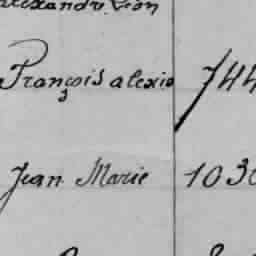 alexandre Léon
François alexis 744
Jean Marie 1030